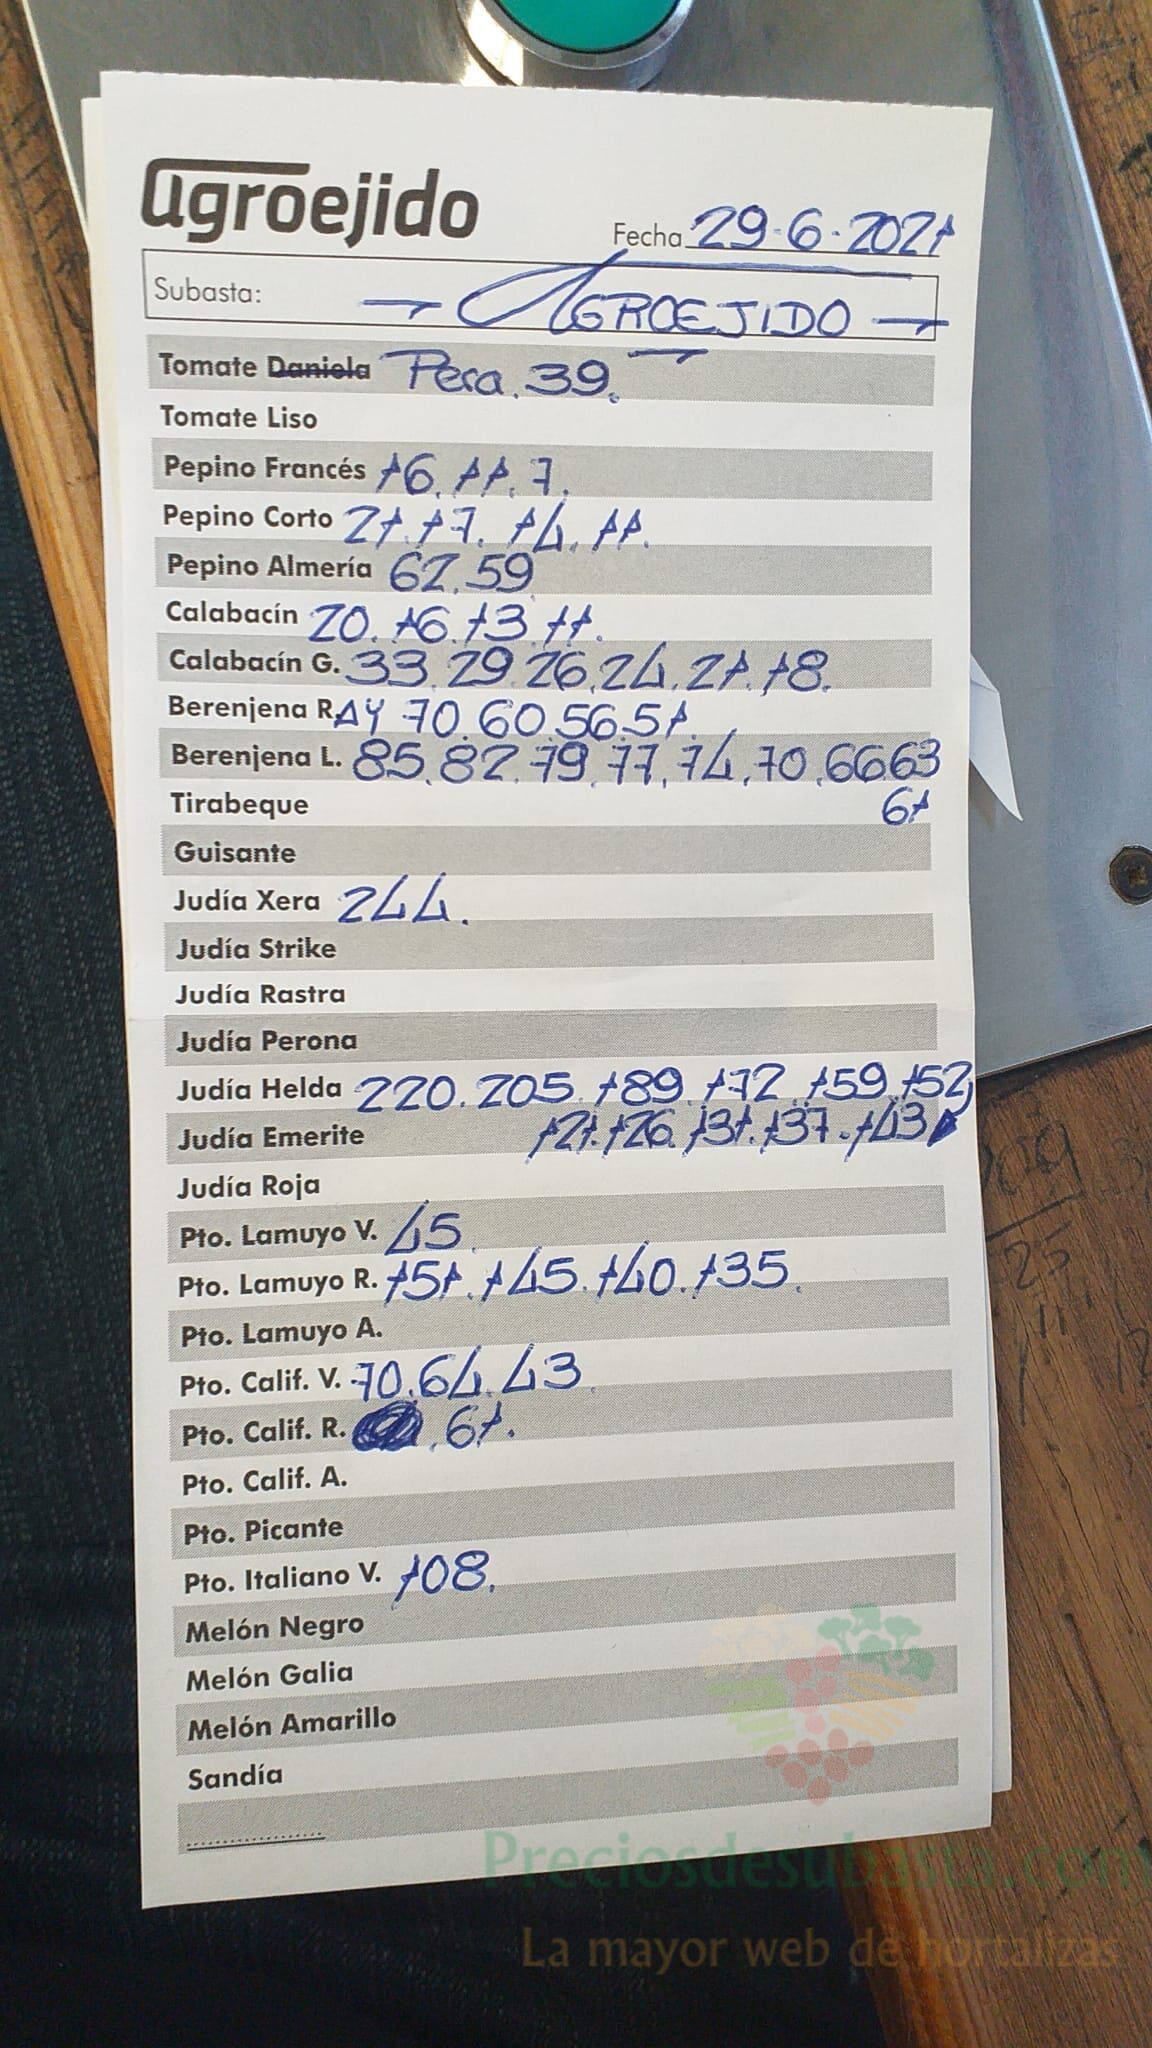 agroejido
Fecha 29-6-2021
Subasta: AGROEJIDO
Tomate Daniela Pera. 39.
Tomate Liso
Pepino Francés 16. 11. 7.
Pepino Corto 21. 17. 14. 11.
Pepino Almería 62. 59
Calabacín 20. 16. 13. 11.
Calabacín G. 33. 29. 26. 24. 21. 18.
Berenjena R. AY 70. 60. 56. 51.
Berenjena L. 85. 82. 79. 77. 74. 70. 66 63
Tirabeque 61
Guisante
Judía Xera 244.
Judía Strike
Judía Rastra
Judía Perona
Judía Helda 220. 205. 189. 172. 159. 152
Judía Emerite 121. 126. 131. 137. 143
Judía Roja
Pto. Lamuyo V. 45.
Pto. Lamuyo R. 151. 145. 140. 135.
Pto. Lamuyo A.
Pto. Calif. V. 70. 64. 43.
Pto. Calif. R. . 61.
Pto. Calif. A.
Pto. Picante
Pto. Italiano V. 108.
Melón Negro
Melón Galia
Melón Amarillo
Sandía
Preciosdesubasta.com
La mayor web de hortalizas